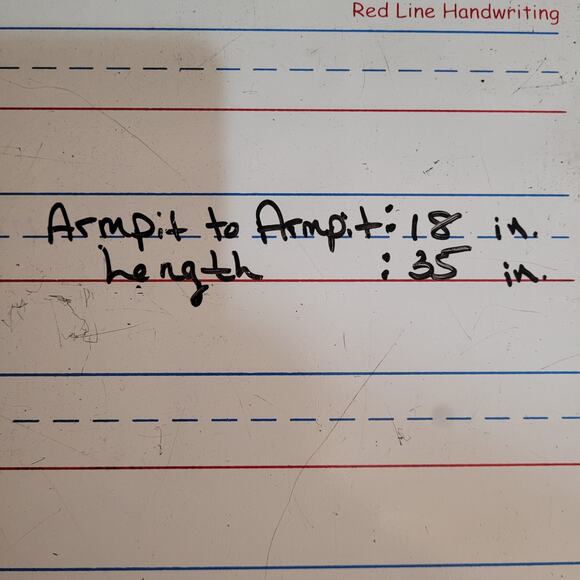 Red Line Handwriting
Armpit to Armpit: 18 in.
Length : 35 in.